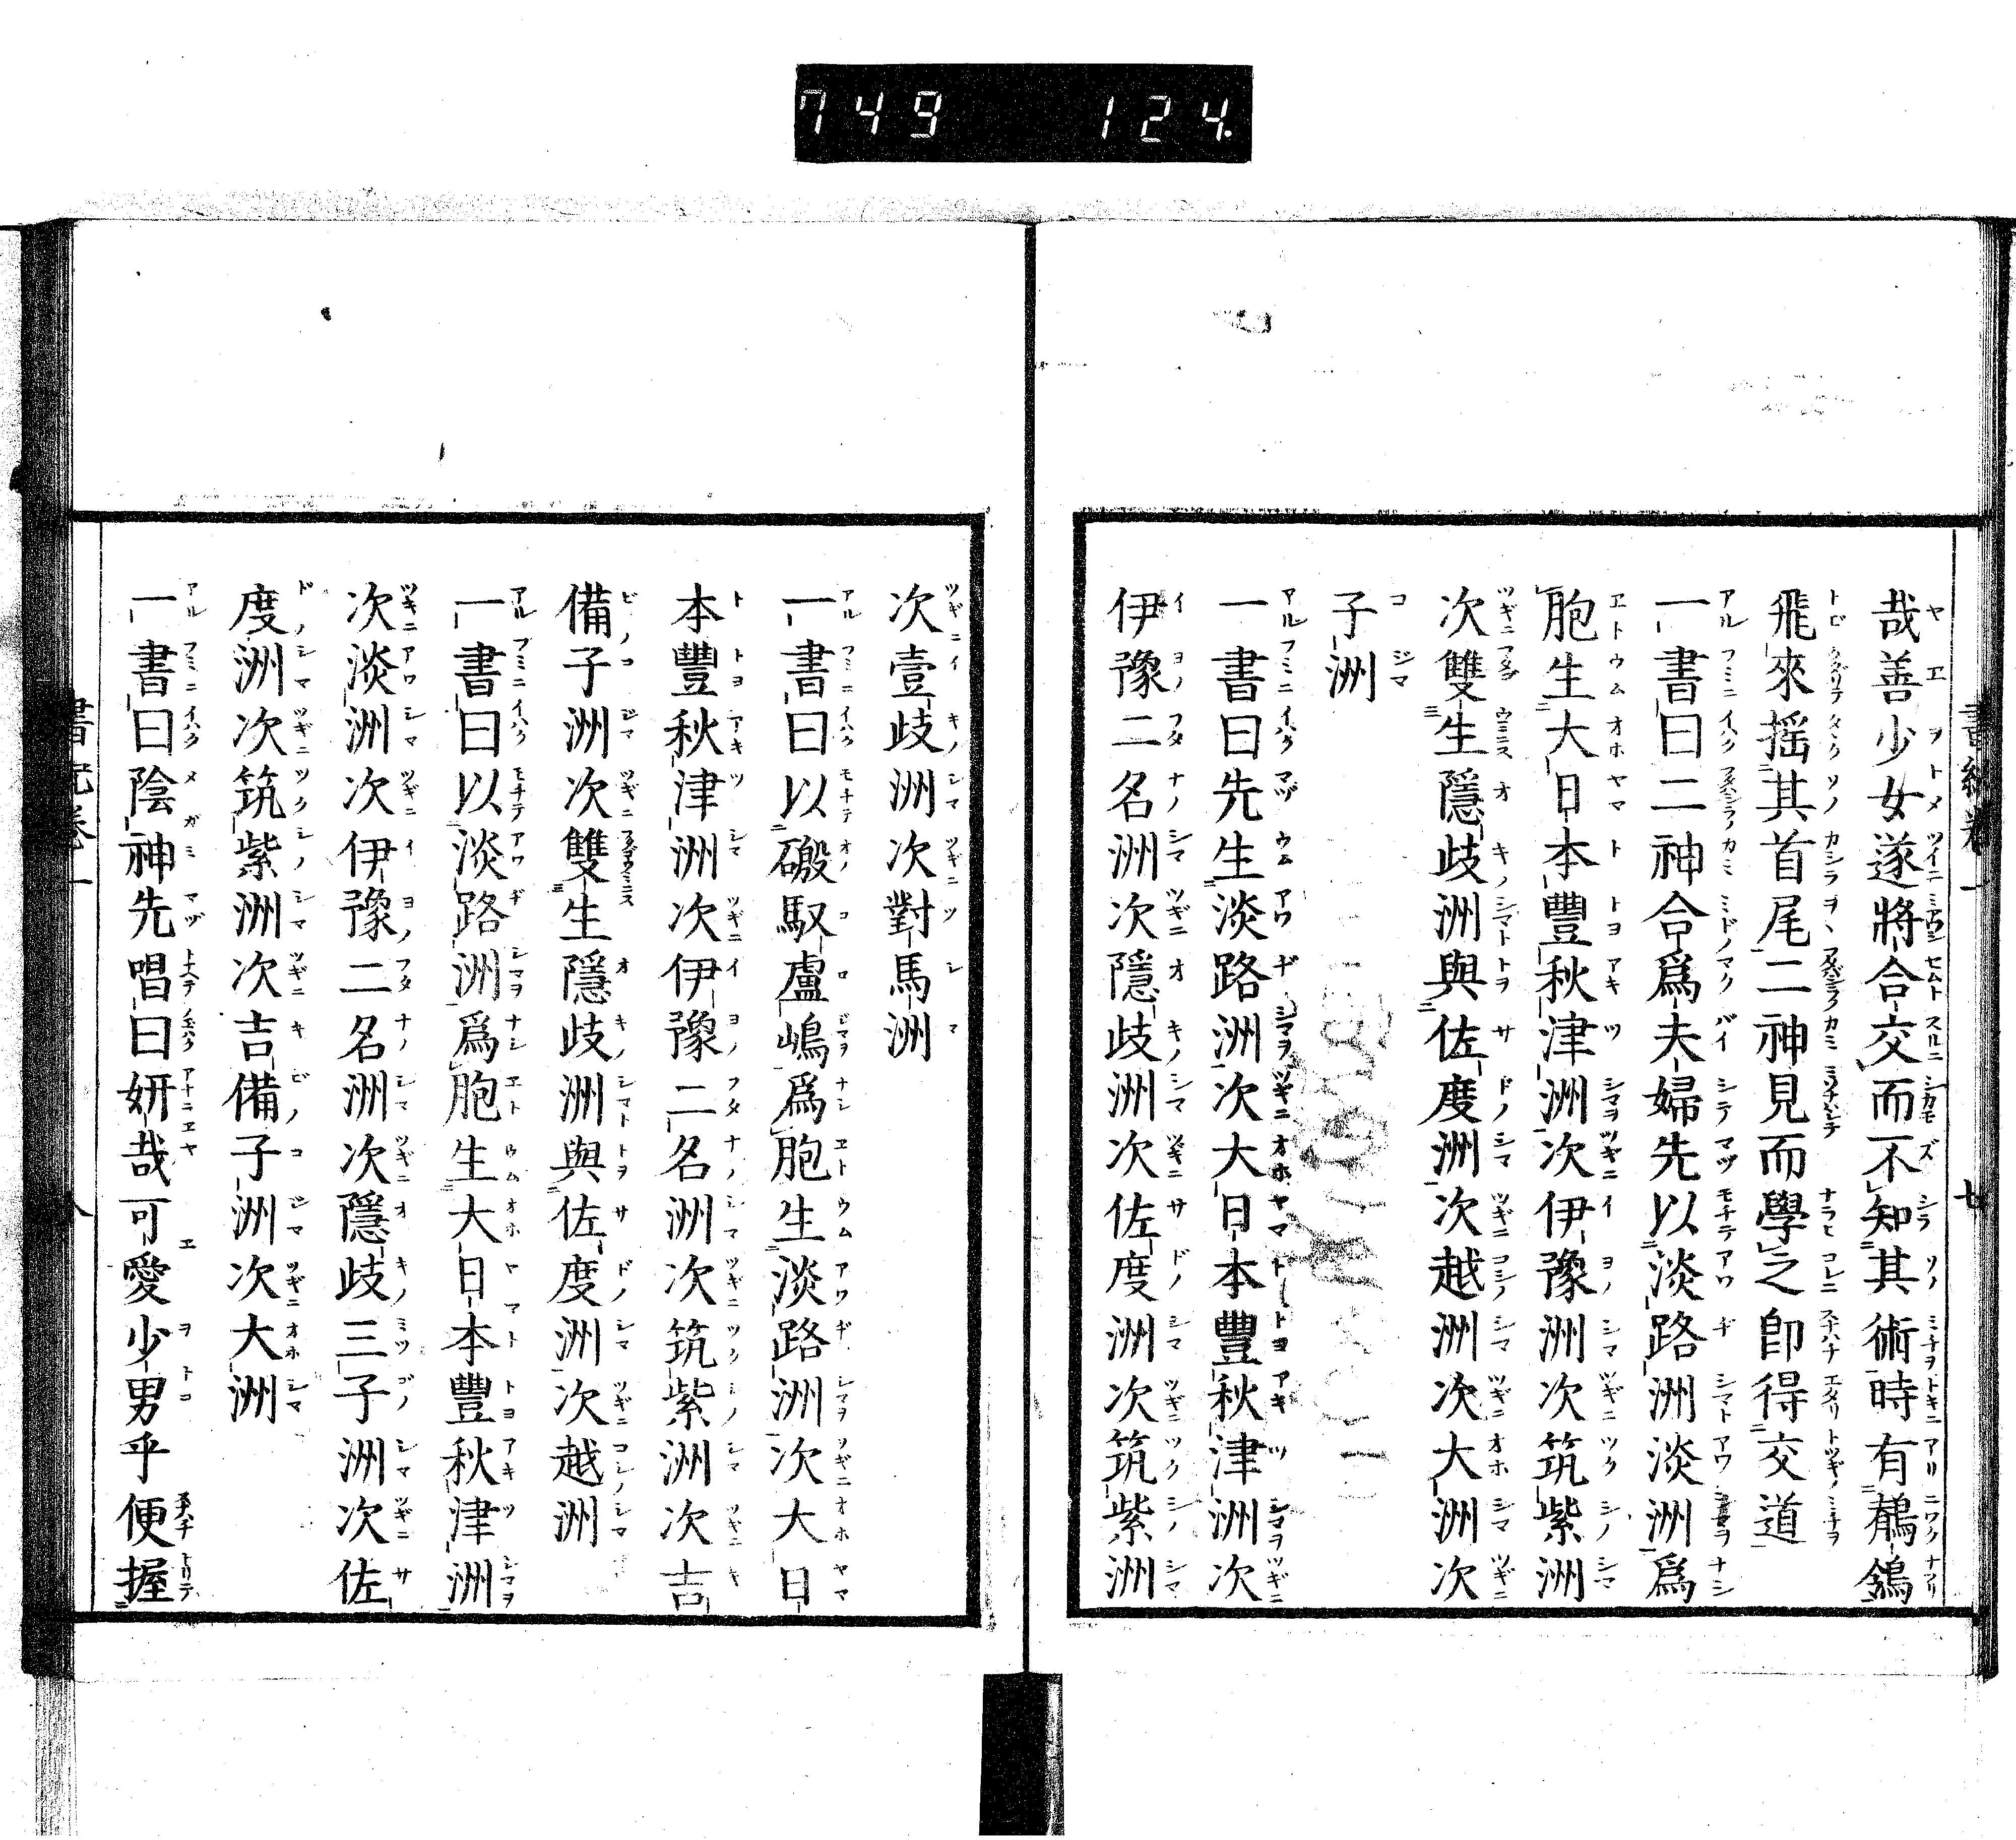 749 124
書紀卷一 七
哉善少女遂將合交而不知其術時有鶺鴒
飛來搖其首尾二神見而學之卽得交道
一書曰二神合爲夫婦先以淡路洲淡洲爲
胞生大日本豐秋津洲次伊豫洲次筑紫洲
次雙生隱歧洲與佐度洲次越洲次大洲次
子洲
一書曰先生淡路洲次大日本豐秋津洲次
伊豫二名洲次隱歧洲次佐度洲次筑紫洲
次壹歧洲次對馬洲
一書曰以磤馭盧嶋爲胞生淡路洲次大日
本豐秋津洲次伊豫二名洲次筑紫洲次吉
備子洲次雙生隱歧洲與佐度洲次越洲
一書曰以淡路洲爲胞生大日本豐秋津洲
次淡洲次伊豫二名洲次隱歧三子洲次佐
度洲次筑紫洲次吉備子洲次大洲
一書曰陰神先唱曰妍哉可愛少男乎便握
書紀卷一 八